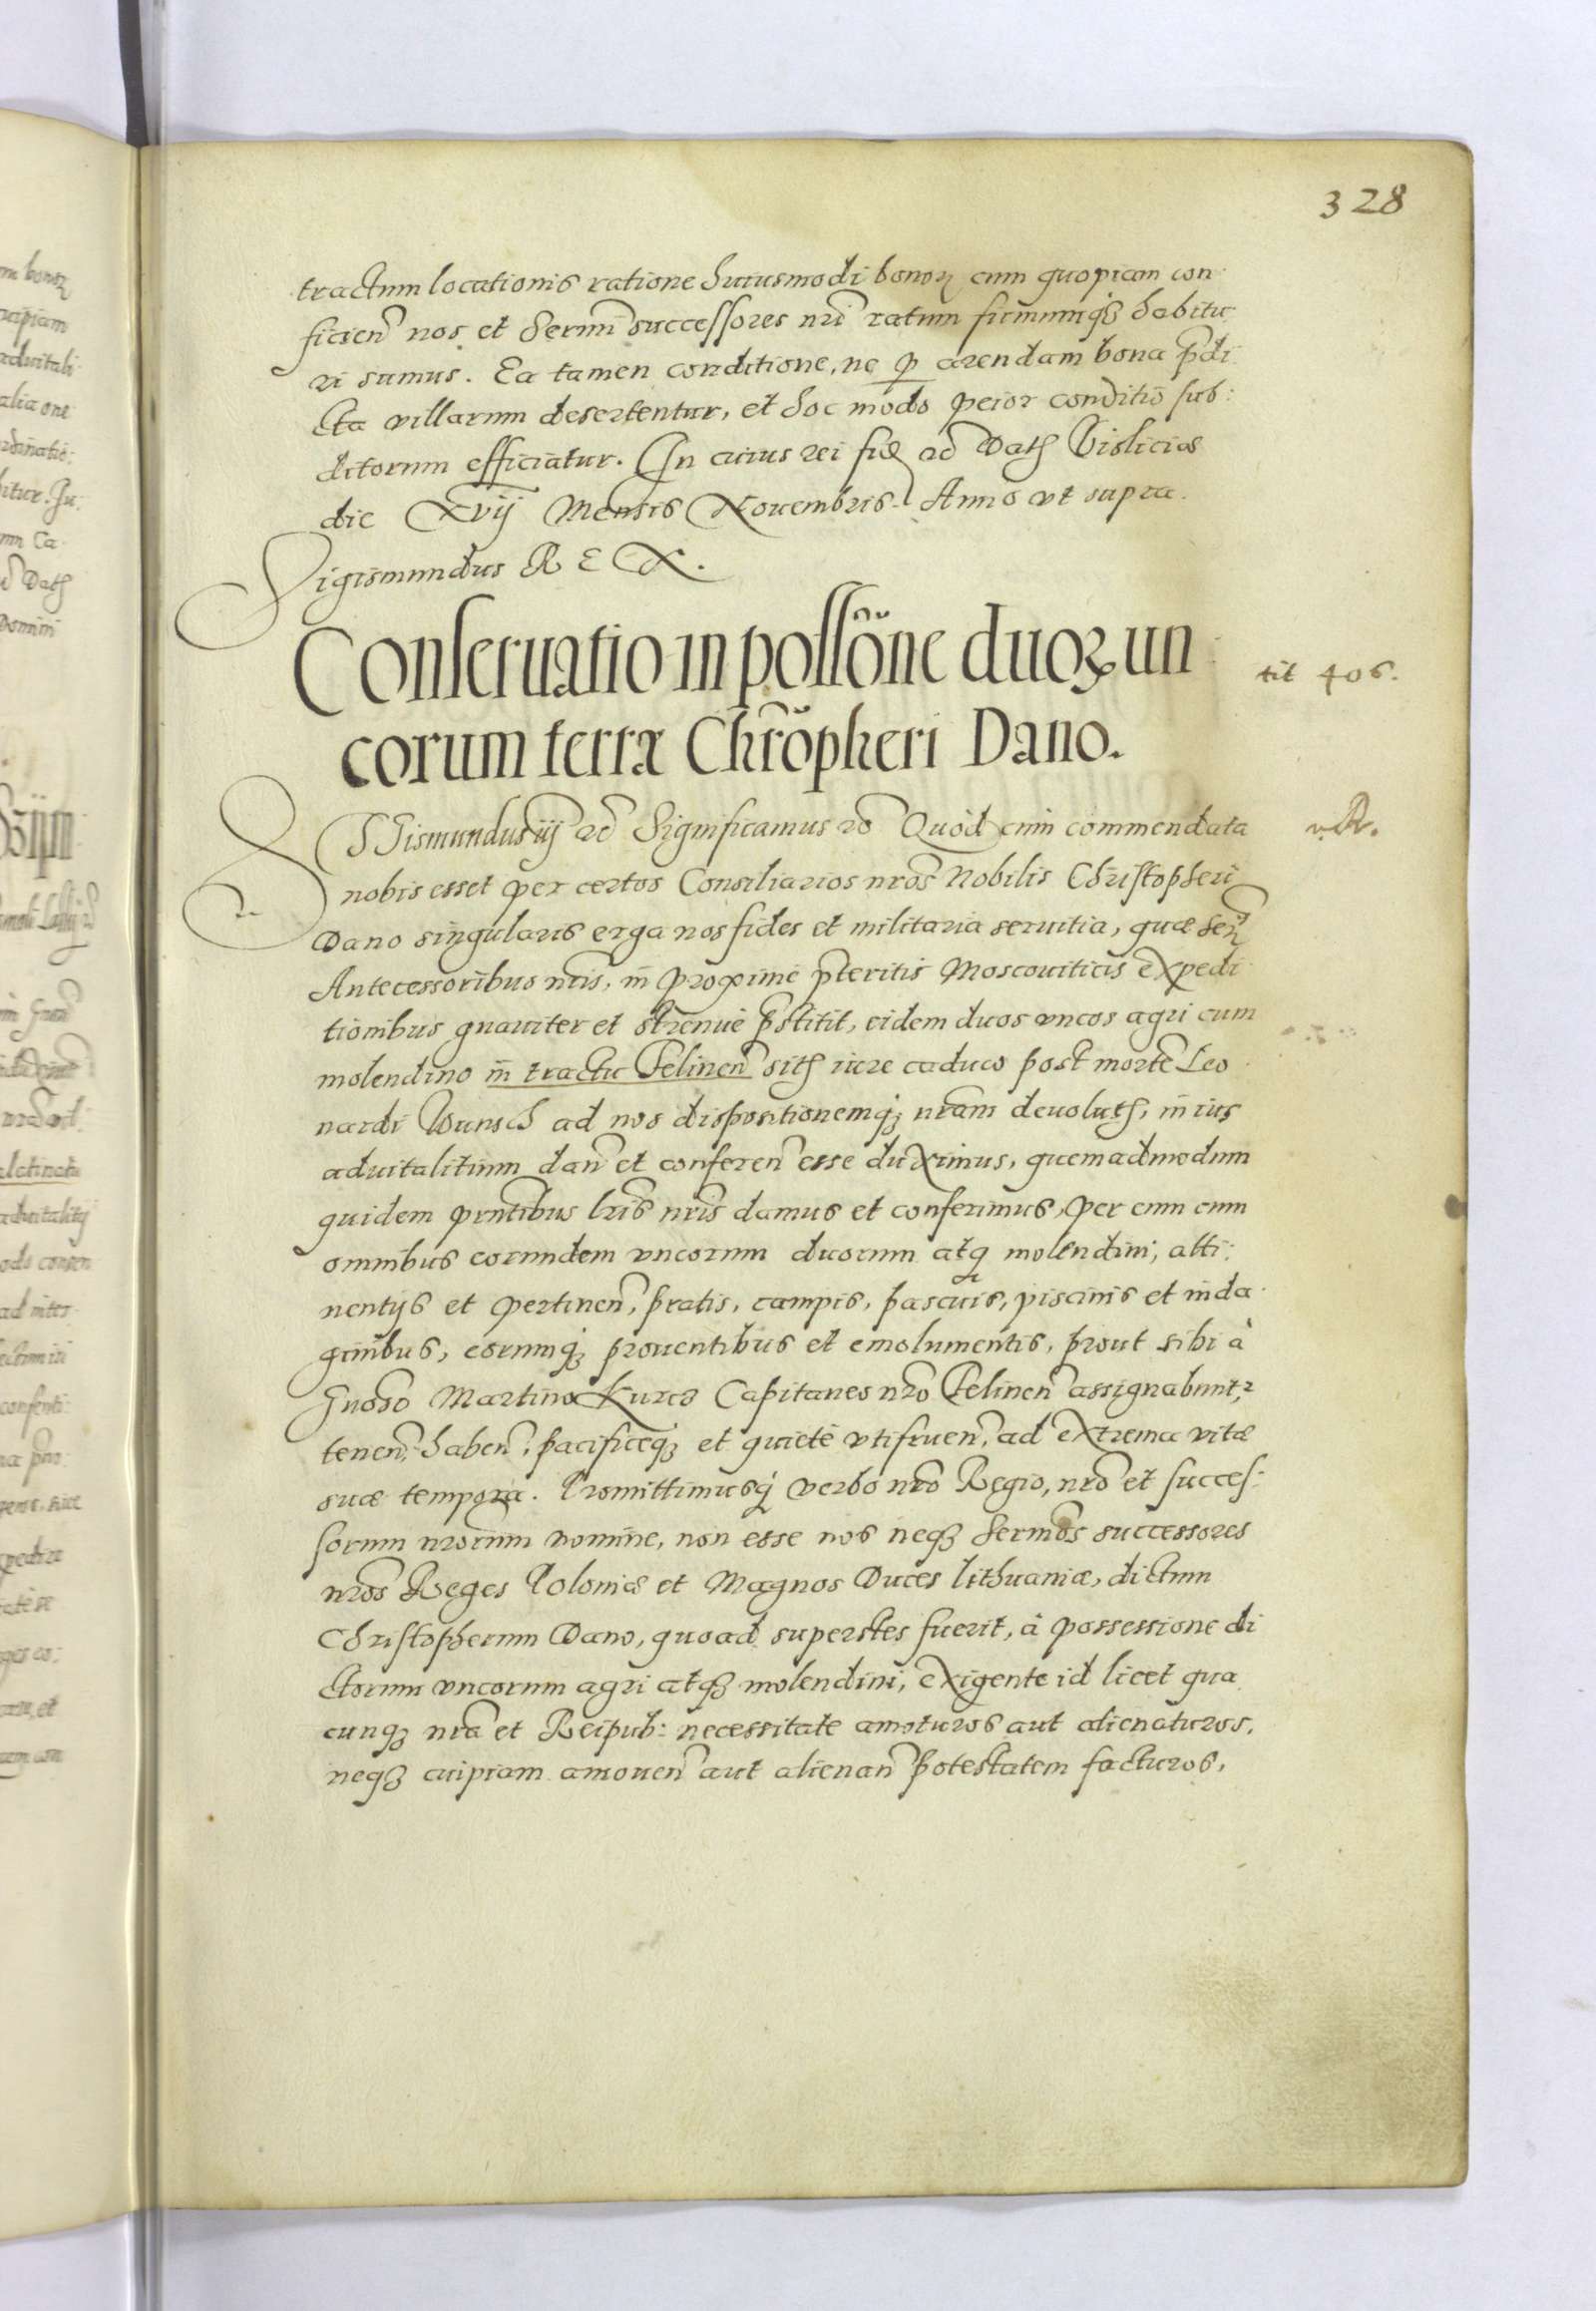 328
tractum locationis ratione huiusmodi bonoꝝ cum quopiam con
ficien̄ nos et Sermi successores nr̄i ratum firmumq̷ꝫ habitu
ri sumus. Ea tamen conditione, ne ꝑ arendam bona p̄di
cta villarum desertentur, et hoc modo peior conditio sub:
ditorum efficiatur. In cuius rei fid̄ ꝛc̄ Dat̄ Visliciae
die Xvij Mensis Nouembris Anno vt supra.
Sigismundus REX.
Conseruatio in poss̄one duoꝝ un
corum terræ Chr̄opheri Dano.
tit 406.
SIGismundus iij ꝛc̄ Significamus ꝛc̄ Quòd cum commendata
nobis esset per certos Consiliarios nr̄os Nobilis Christopheri
Dano singularis erga nos fides et militaria seruitia, quæ Ser̄
Antecessoribus nr̄is, in proximè p̄teritis Moscouiticis expedi
tionibus gnauiter et strenuè p̄stitit, eidem duos vncos agri cum
molendino in tractu Felinen̄ sit̄ iure caduco post mortē Leo
nardi Wunsch ad nos dispositionemq̷ꝫ nr̄am deuolut̄, in ius
aduitalitium dan̄ et conferen̄ esse duximus, quemadmodum
quidem pr̄ntibus lr̄is nr̄is damus et conferimus, per eum cum
omnibus eorundem vncorum duorum atq̷ molendini, atti:
nentijs et pertinen̄, pratis, campis, pascuis, piscinis et inda
ginibus, eorumq̷ꝫ prouentibus et emolumentis, prout sibi à
Gn̄oso Martino Kurcz Capitaneo nr̄o Felinen̄ assignabunt̄
tenen̄, haben̄, pacificeq̷ꝫ et quietè vtifruen̄, ad extrema vitæ
suæ tempora. Promittimusq̷ verbo nr̄o Regio, nr̄o et succes:
sorum nr̄orum nomine, non esse nos neq̷ꝫ Sermos successores
nr̄os Reges Poloniæ et Magnos Duces Lithuaniæ, dictum
Christopherum Dano, quoad superstes fuerit, à possessione di
ctorum vncorum agri atq̷ꝫ molendini, exigente id licet qua
cunq̷ꝫ nr̄a et Reipub: necessitate amoturos aut alienaturos,
neq̷ꝫ cuipiam amouen̄ aut alienan̄ potestatem facturos,